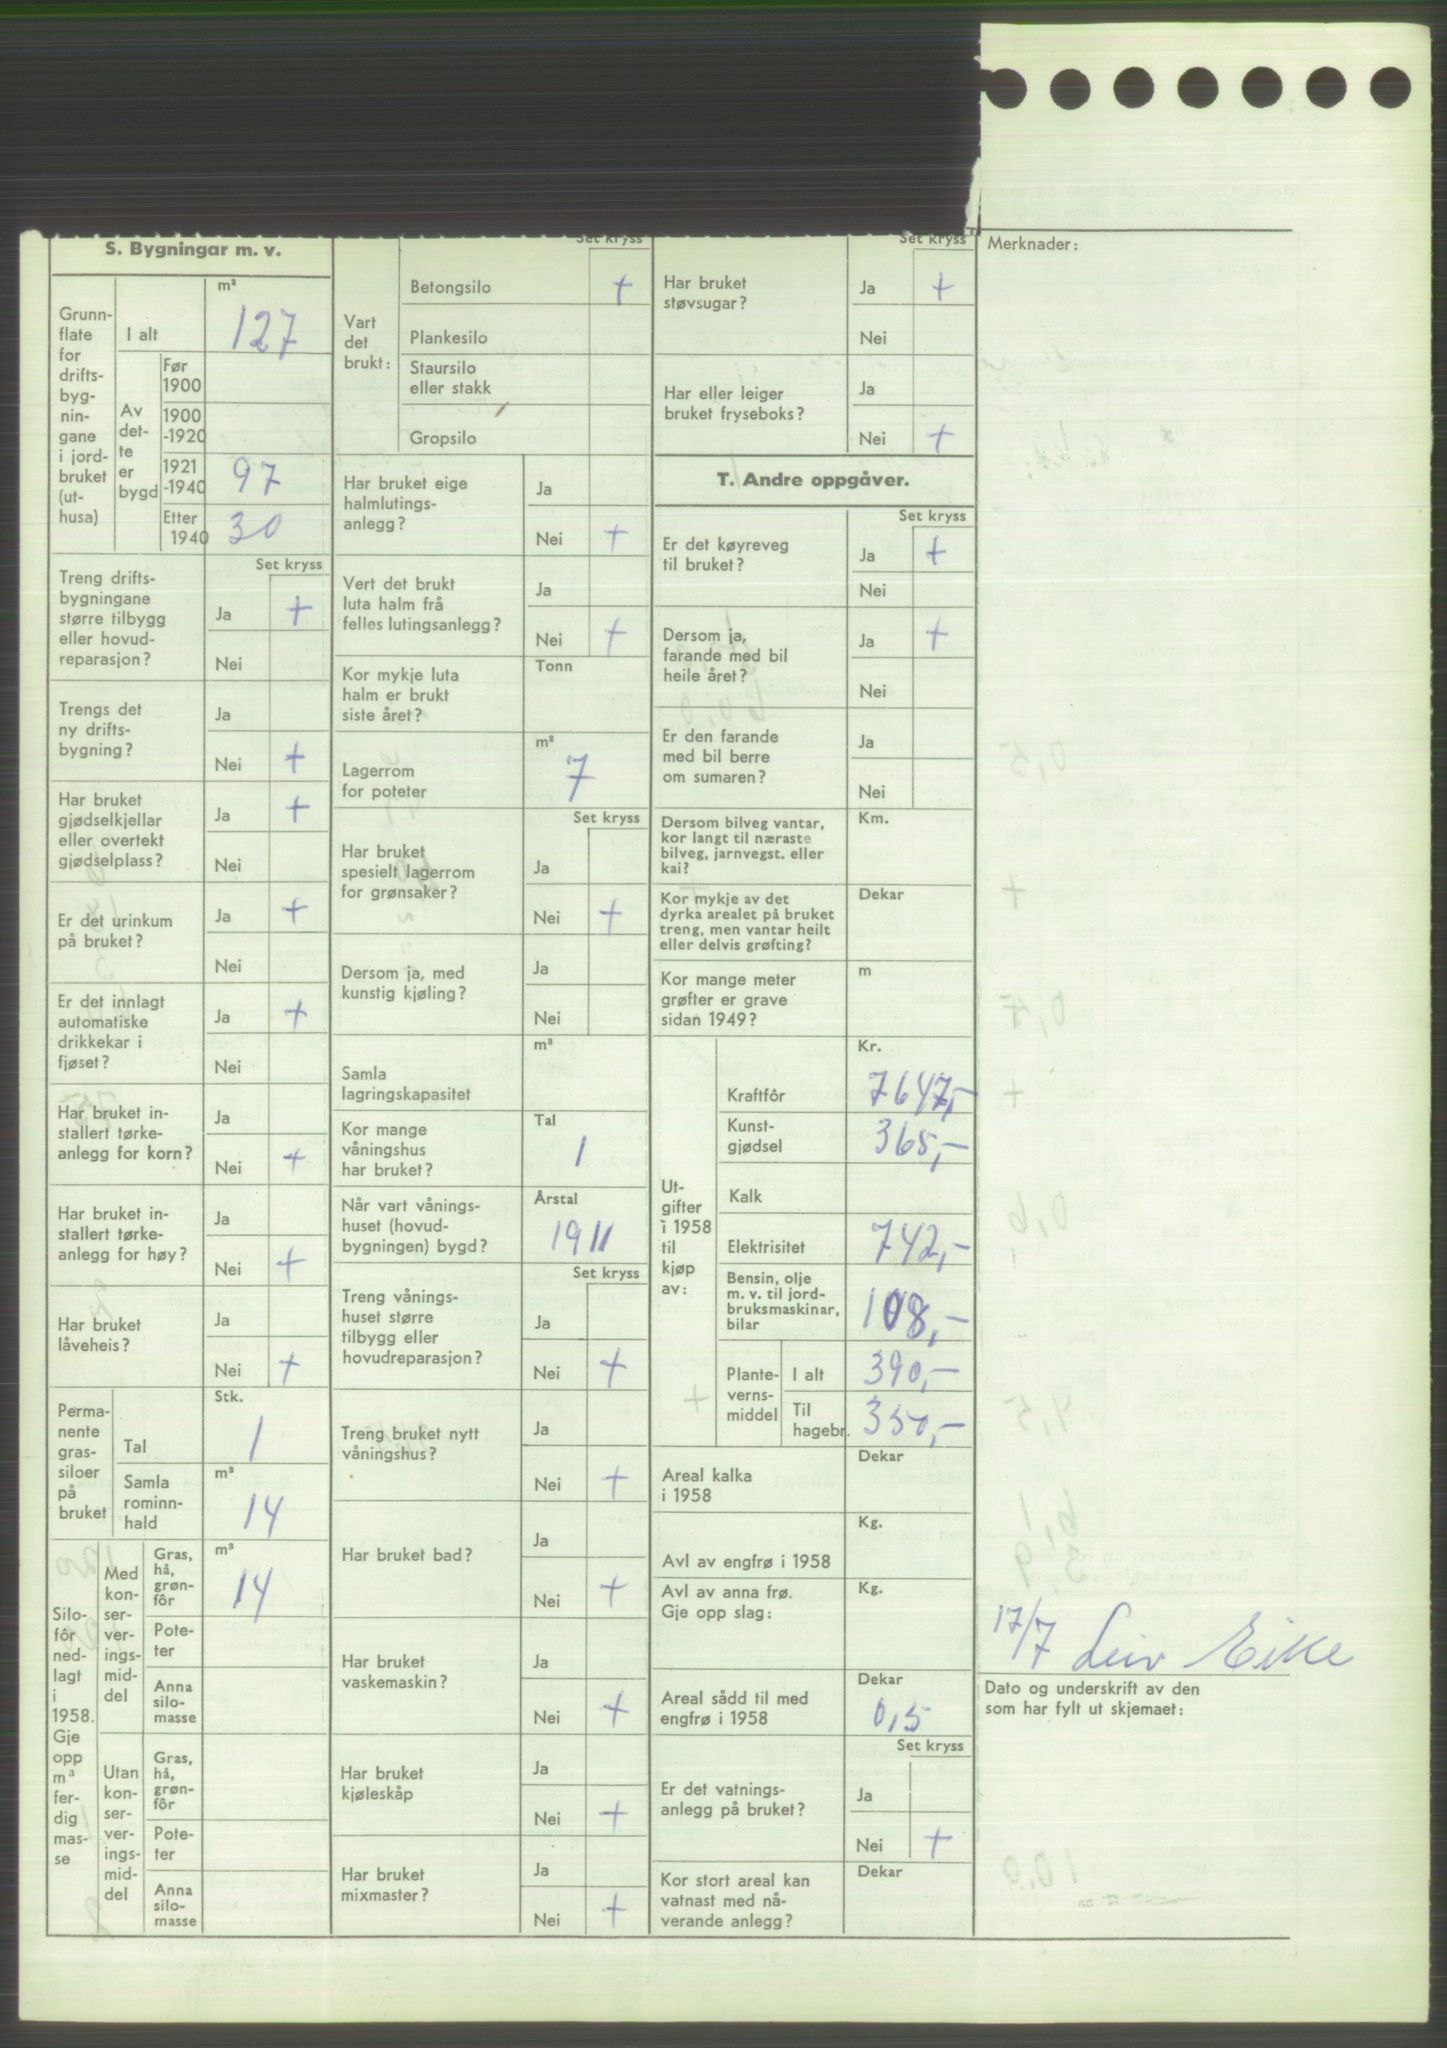 S. Bygningar m. v.
Grunn-
flate
for
drifts-
byg-
nin-
gane
i jord-
bruket
(ut-
husa)
m²
I alt 127
Av
det-
te
er
bygd
Før
1900
1900
-1920
1921
-1940 97
Etter
1940 30
Set kryss
Treng drifts-
bygningane
større tilbygg
eller hovud-
reparasjon?
Ja +
Nei
Trengs det
ny drifts-
bygning?
Ja
Nei +
Har bruket
gjødselkjellar
eller overtekt
gjødselplass?
Ja +
Nei
Er det urinkum
på bruket?
Ja +
Nei
Er det innlagt
automatiske
drikkekar i
fjøset?
Ja +
Nei
Har bruket in-
stallert tørke-
anlegg for korn?
Ja
Nei +
Har bruket in-
stallert tørke-
anlegg for høy?
Ja
Nei +
Har bruket
låveheis?
Ja
Nei +
Perma-
nente
gras-
siloer
på
bruket
Stk.
Tal 1
m³
Samla
rominn-
hald
14
Silo-
fôr
ned-
lagt
i
1958.
Gje
opp
m³
fer-
dig
mas-
se
Med
kon-
ser-
ver-
ings-
mid-
del
Gras,
hå,
grøn-
fôr
m³
14
Pote-
ter
Anna
silo-
masse
Utan
kon-
ser-
ver-
ings-
mid-
del
Gras,
hå,
grøn-
fôr
Pote-
ter
Anna
silo-
masse
Set kryss
Vart
det
brukt:
Betongsilo +
Plankesilo
Staursilo
eller stakk
Gropsilo
Har bruket eige
halmlutings-
anlegg?
Ja
Nei +
Vert det brukt
luta halm frå
felles lutingsanlegg?
Ja
Nei +
Kor mykje luta
halm er brukt
siste året?
Tonn
Lagerrom
for poteter
m²
7
Set kryss
Har bruket
spesielt lagerrom
for grønsaker?
Ja
Nei +
Dersom ja, med
kunstig kjøling?
Ja
Nei
Samla
lagringskapasitet
m³
Kor mange
våningshus
har bruket?
Tal
1
Når vart vånings-
huset (hovud-
bygningen) bygd?
Årstal
1911
Set kryss
Treng vånings-
huset større
tilbygg eller
hovudreparasjon?
Ja
Nei +
Treng bruket nytt
våningshus?
Ja
Nei +
Har bruket bad?
Ja
Nei +
Har bruket
vaskemaskin?
Ja
Nei +
Har bruket
kjøleskåp
Ja
Nei +
Har bruket
mixmaster?
Ja
Nei +
Set kryss
Har bruket
støvsugar?
Ja +
Nei
Har eller leiger
bruket fryseboks?
Ja
Nei +
T. Andre oppgåver.
Set kryss
Er det køyreveg
til bruket?
Ja +
Nei
Dersom ja,
farande med bil
heile året?
Ja +
Nei
Er den farande
med bil berre
om sumaren?
Ja
Nei
Dersom bilveg vantar,
kor langt til næraste
bilveg, jarnvegst. eller
kai?
Km.
Kor mykje av det
dyrka arealet på bruket
treng, men vantar heilt
eller delvis grøfting?
Dekar
Kor mange meter
grøfter er grave
sidan 1949?
m
Ut-
gifter
i 1958
til
kjøp
av:
Kr.
Kraftfôr 7647,-
Kunst-
gjødsel 365,-
Kalk
Elektrisitet 742,-
Bensin, olje
m. v. til jord-
bruksmaskinar,
bilar
108,-
Plante-
verns-
middel
I alt 390,-
Til
hagebr. 350,-
Areal kalka
i 1958
Dekar
Avl av engfrø i 1958
Kg.
Avl av anna frø.
Gje opp slag:
Kg.
Areal sådd til med
engfrø i 1958
Dekar
0,5
Set kryss
Er det vatnings-
anlegg på bruket?
Ja
Nei +
Kor stort areal kan
vatnast med nå-
verande anlegg?
Dekar
Merknader:
17/7 Leiv Eike
Dato og underskrift av den
som har fylt ut skjemaet: